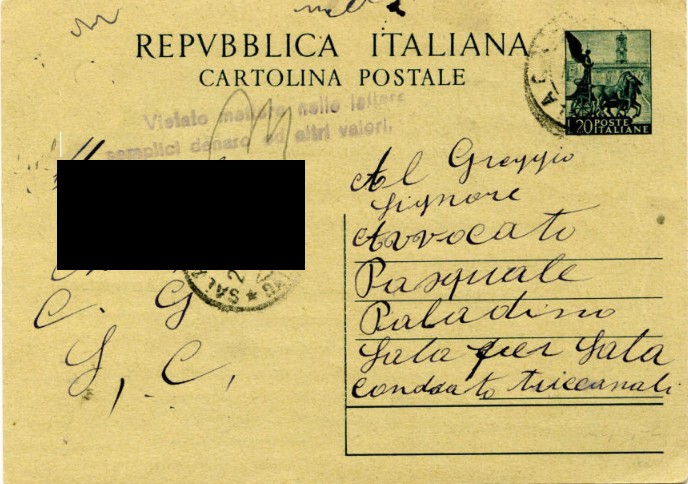 REPVBBLICA ITALIANA
CARTOLINA POSTALE
20 POSTE ITALIANE
Vietato mettere nelle lettere
semplici denaro ed altri valori.
Al Greggio
Signore
Avvocato
Pasquale
Paladino
Sala per Sala
SAL
C. G
S, C,